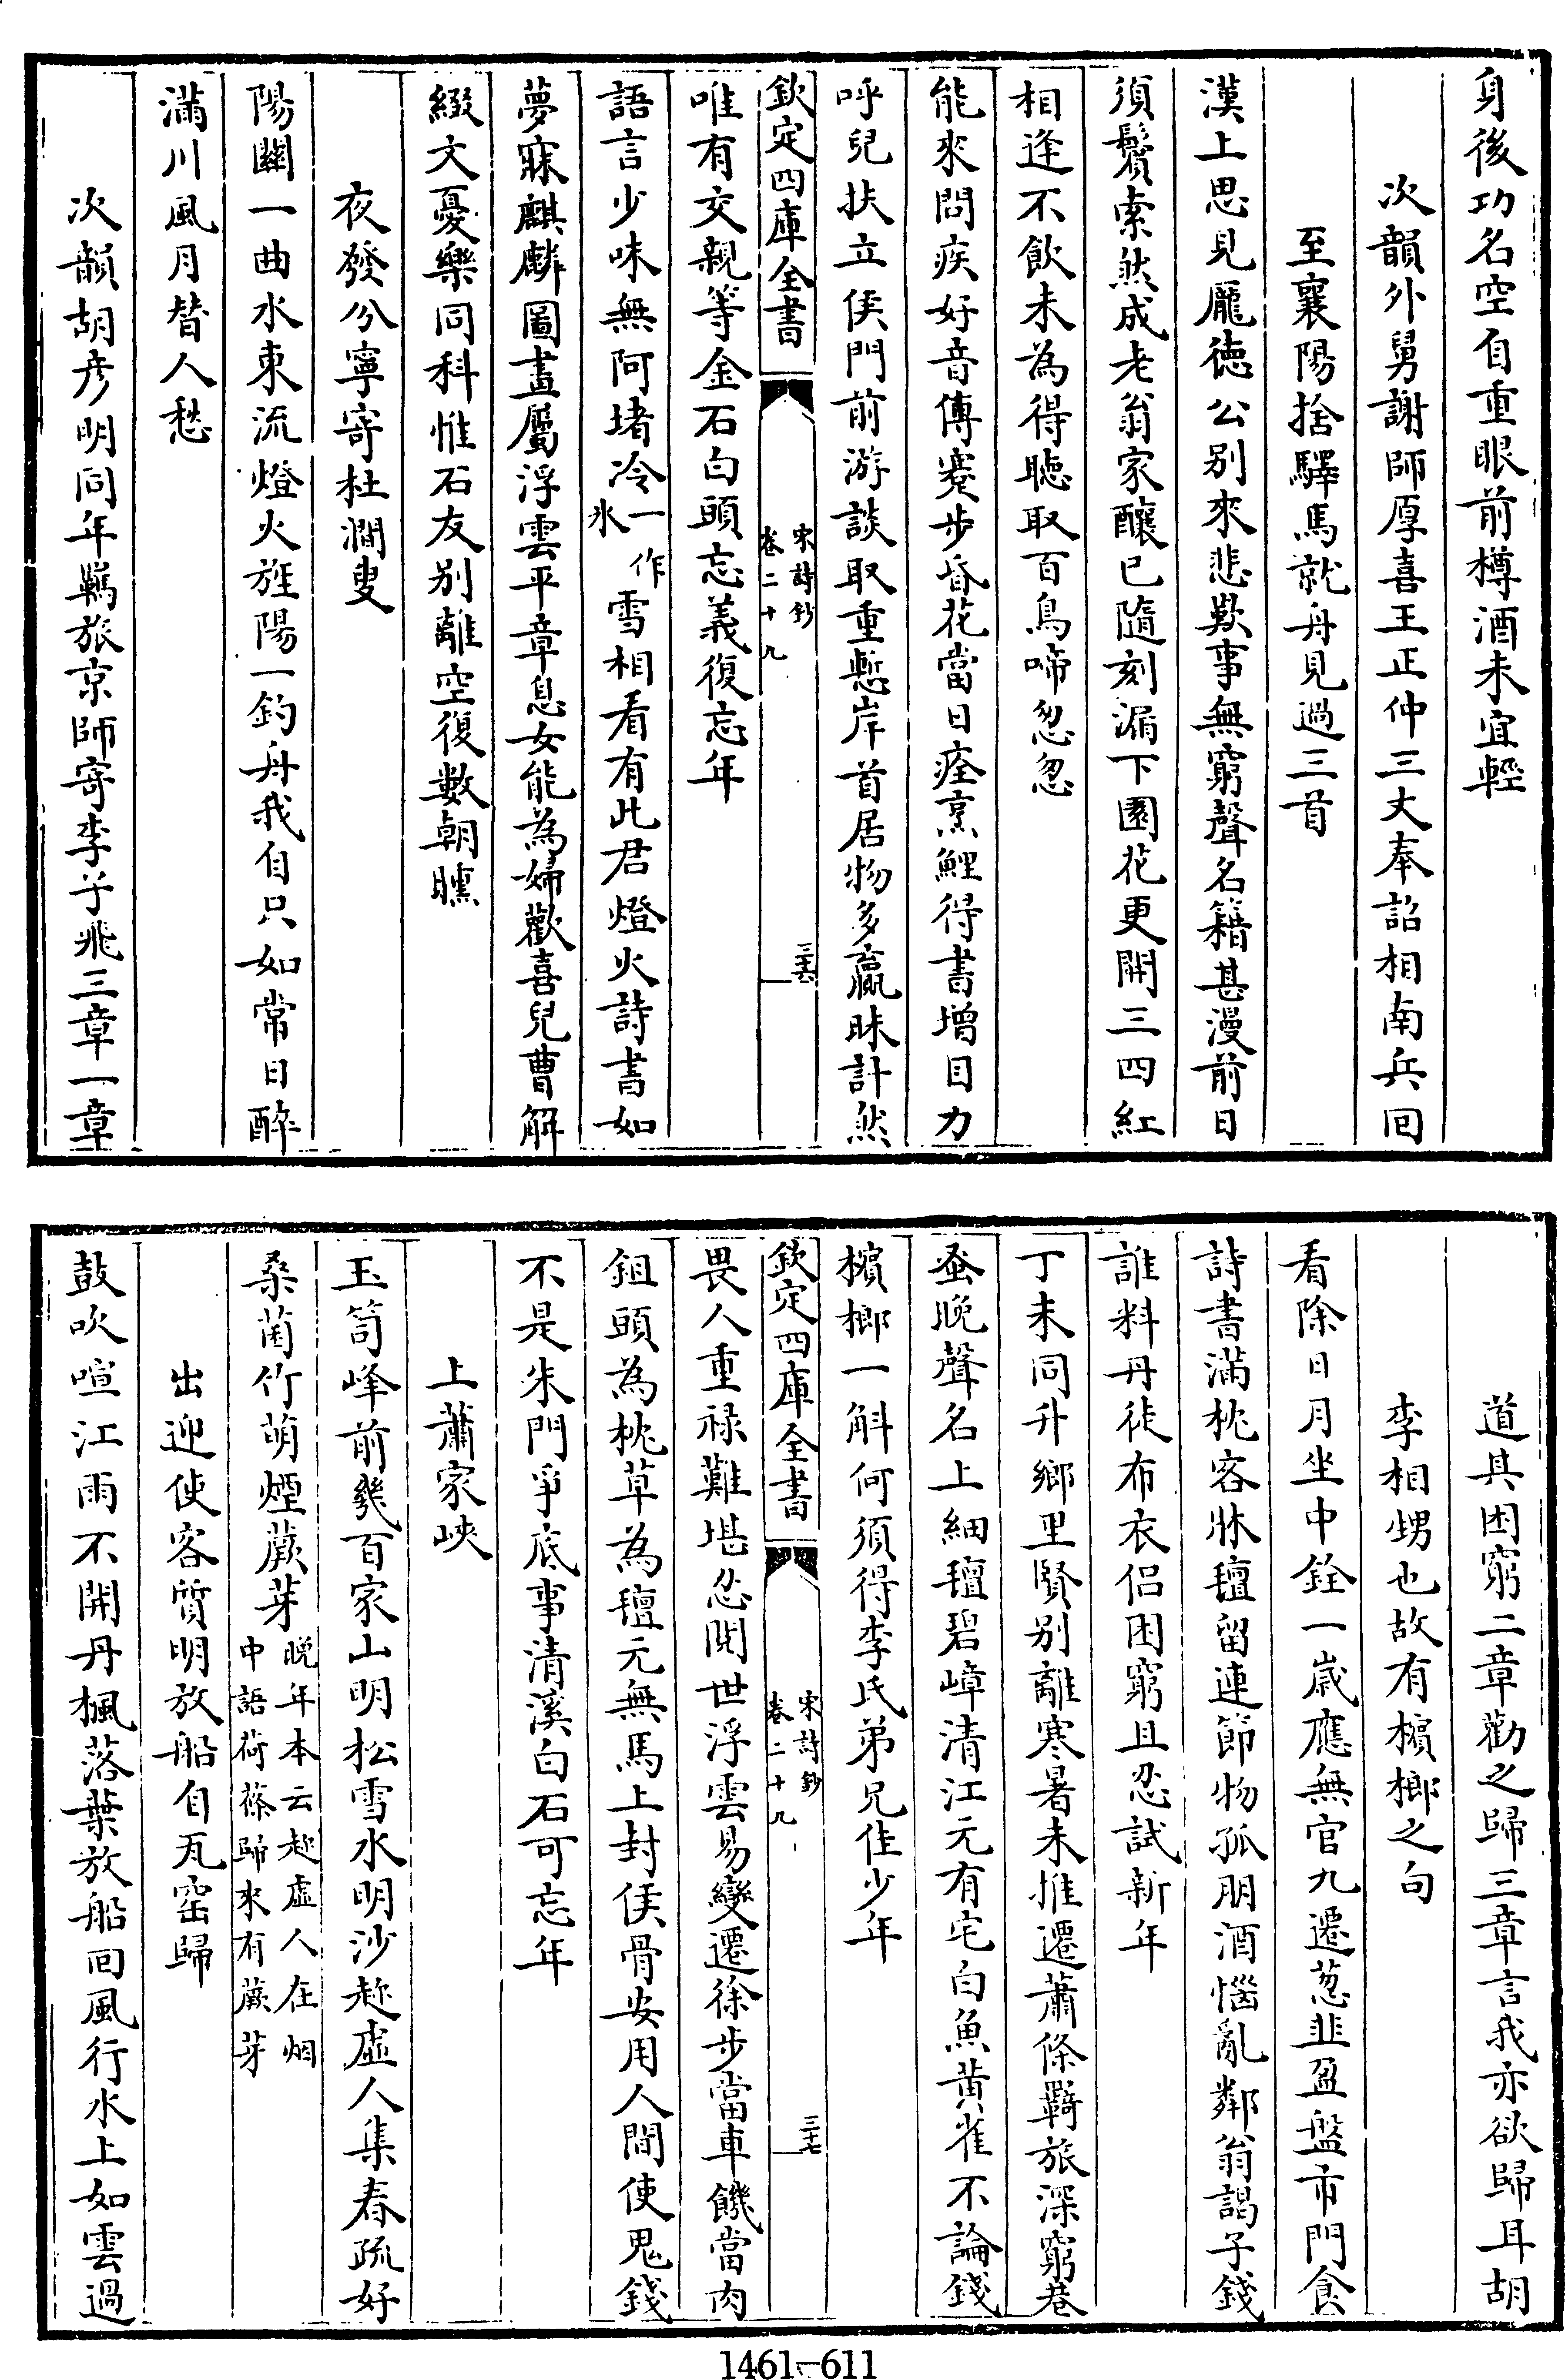 身後功名空自重眼前樽酒未宜輕
次韻外舅謝師厚喜王正仲三丈奉詔相南兵回
至襄陽捨驛馬就舟見過三首
漢上思見龐德公别來悲歎事無窮聲名籍甚漫前日
須鬢索然成老翁家釀已隨刻漏下園花更開三四紅
相逢不飲未為得聽取百鳥啼怱怱
能來問疾好音傳蹇步昏花當日痊烹鯉得書增目力
呼兒扶立俟門前游談取重慙岸首居物多贏昧計然
欽定四庫全書
宋詩鈔
卷二十九
三十六
唯有交親等金石白頭忘義復忘年
語言少味無阿堵冷一作氷雪相看有此君燈火詩書如
夢寐麒麟圖畫屬浮雲平章息女能為婦歡喜兒曹解
綴文憂樂同科惟石友别離空復數朝曛
夜發分寧寄杜澗叟
陽關一曲水東流燈火旌陽一釣舟我自只如常日醉
滿川風月替人愁
次韻胡彦明同年羈旅京師寄李子飛三章一章
道其困窮二章勸之歸三章言我亦欲歸耳胡
李相甥也故有檳榔之句
看除日月坐中銓一歳應無官九遷葱韭盈盤市門食
詩書滿枕客牀氊留連節物孤朋酒惱亂鄰翁謁子錢
誰料丹徒布衣侣困窮且忍試新年
丁未同升鄉里賢别離寒暑未推遷蕭條羈旅深窮巷
蚤晚聲名上細氊碧嶂清江元有宅白魚黄雀不論錢
檳榔一斛何須得李氏弟兄佳少年
欽定四庫全書
宋詩鈔
卷二十九
三十七
畏人重禄難堪忍閱世浮雲易變遷徐步當車饑當肉
鉏頭為枕草為氊元無馬上封侯骨安用人間使鬼錢
不是朱門爭底事清溪白石可忘年
上蕭家峽
玉笥峰前幾百家山明松雪水明沙趂虚人集春疏好
桑菌竹萌煙蕨芽晚年本云趂虚人在烟中語荷蓧歸來有蕨芽
出迎使客質明放船自瓦窑歸
鼓吹喧江雨不開丹楓落葉放船回風行水上如雲過
1461-611